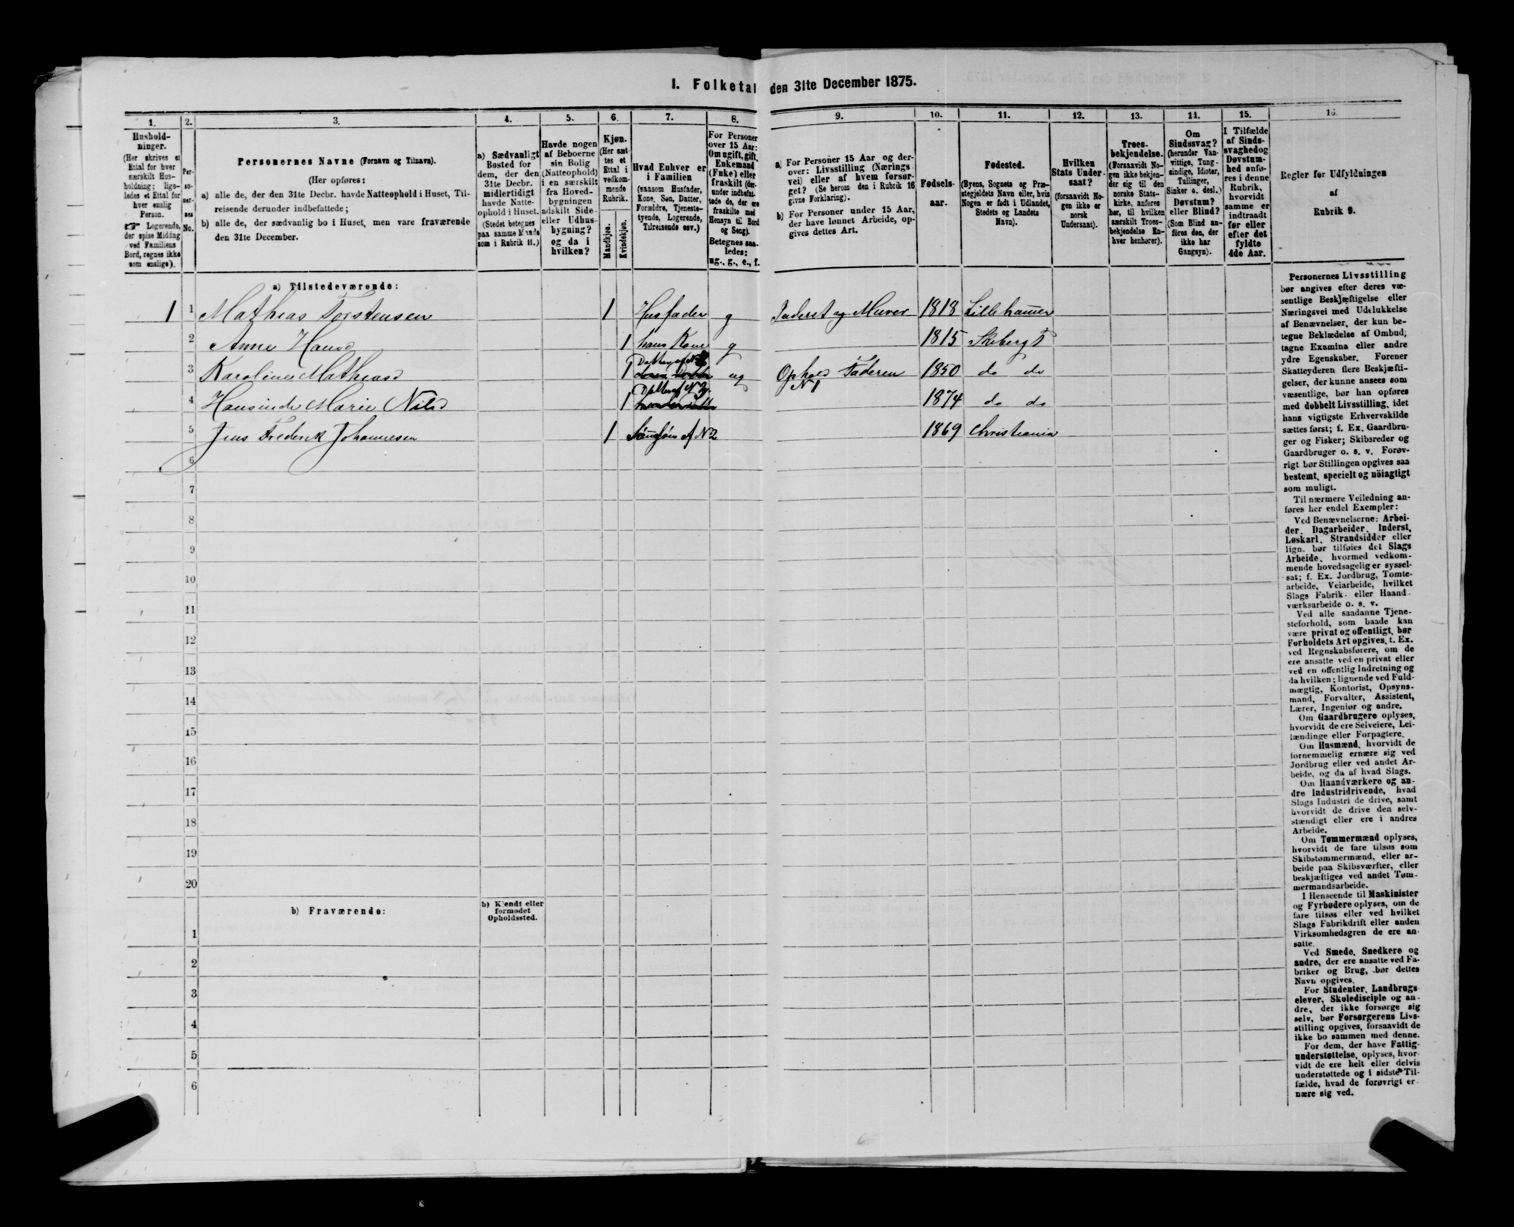 I. Folketal den 31te December 1875.
1. 2. 3. 4. 5. 6. 7. 8. 9. 10. 11. 12. 13. 14. 15. 16.
Hushold-
ninger.
(Her skrives et
Ettal for hver
særskilt Hus-
holdning; lige-
ledes et Ettal for
hver enslig
Person.
☞ Logerende,
der spise Middag
ved Familiens
Bord, regnes ikke
som enslige).
Per-
so-
ner-
nes
No.
Personernes Navne (Fornavn og Tilnavn).
(Her opføres:
a) alle de, der den 31te Decbr. havde Natteophold i Huset, Til-
reisende derunder indbefattede;
b) alle de, der sædvanlig bo i Huset, men vare fraværende
den 31te December.
a) Sædvanligt
Bosted for
dem, der den
31te Decbr.
midlertidigt
havde Natte-
ophold i Huset.
(Stedet betegnes
paa samme Maade
som i Rubrik 11.)
Havde nogen
af Beboerne
sin Bolig
(Natteophold)
i en særskilt
fra Hoved-
bygningen
adskilt Side-
eller Udhus-
bygning?
og da i
hvilken?
Kjøn.
(Her sæt-
tes et
Ettal i
vedkom-
mende
Rubrik.
Mandkjøn.
Kvindekjøn.
Hvad Enhver er
i Familien
(saasom Husfader,
Kone, Søn, Datter,
Forældre, Tjeneste-
tyende, Logerende,
Tilreisende osv.)
For Personer
over 15 Aar:
Om ugift, gift,
Enkemand
(Enke) eller
fraskilt (der-
under indbefat-
tede de, der ere
fraskilte med
Hensyn til Bord
og Seng).
Betegnes saa-
ledes:
ug., g., e., f.
a) For Personer 15 Aar og der-
over: Livsstilling (Nærings-
vei) eller af hvem forsør-
get? (Se herom den i Rubrik 16
givne Forklaring).
b) For Personer under 15 Aar,
der have lønnet Arbeide, op-
gives dettes Art.
Fødsels-
aar.
Fødested.
(Byens, Sognets og Præ-
stegjeldets Navn eller, hvis
Nogen er født i Udlandet,
Stedets og Landets
Navn).
Hvilken
Stats Under-
saat?
(forsaavidt No-
gen ikke er
norsk
Undersaat).
Troes-
bekjendelse.
(Forsaavidt No-
gen ikke bekjen-
der sig til den
norske Stats-
kirke, anføres
her, til hvilken
særskilt Troes-
bekjendelse En-
hver henhører).
Om
Sindssvag?
(herunder Van-
vittige, Tung-
sindige, Idioter,
Tullinger,
Sinker o. desl.)
Døvstum?
eller Blind?
(Som Blind an-
føres den, der
ikke har
Gangsyn).
I Tilfælde
af Sinds-
svaghed og
Døvstum-
hed anfø-
res i denne
Rubrik,
hvorvidt
samme er
indtraadt
før eller
efter det
fyldte
4de Aar.
Regler for Udfyldningen
af
Rubrik 9.
a) Tilstedeværende:
1 1 Mathias Torstensen 1 Husfader g Inderst og Murer 1818 Lillehammer
2 Anne Hansd 1 hans Kone g 1815 Skiberg
3 Karoline Mathiasd 1 Datter af N 2 ug Ophold Faderen N 1 1850 do do
4 Hansine Marie Nilsd 1 Datter af N 3 1874 do do
5 Jens Frederik Johannesen 1 af N 2 1869 Christiania
6
7
8
9
10
11
12
13
14
15
16
17
18
19
20
b) Fraværende:
b) Kjendt eller
formodet
Opholdssted.
1
2
3
4
5
6
Personernes Livsstilling
bør angives efter deres væ-
sentlige Beskjæftigelse eller
Næringsvei med Udelukkelse
af Benævnelser, der kun be-
tegne Beklædelse af Ombud,
tagne Examina eller andre
ydre Egenskaber. Forener
Skatteyderen flere Beskjæfti-
gelser, der kunne ansees som
væsentlige, bør han opføres
med dobbelt Livsstilling, idet
hans vigtigste Erhvervskilde
sættes først; f. Ex. Gaardbru-
ger og Fisker; Skibsreder og
Gaardbruger o. s. v. Forøv-
rigt bør Stillingen opgives saa
bestemt, specielt og nöiagtigt
som muligt.
Til nærmere Veiledning an-
føres her endel Exempler:
Ved Benævnelserne: Arbei-
der, Dagarbeider, Inderst,
Løskarl, Strandsidder eller
lign. bør tilføies det Slags
Arbeide, hvormed vedkom-
mende hovedsagelig er syssel-
sat; f. Ex. Jordbrug, Tomte-
arbeide, Veiarbeide, hvilket
Slags Fabrik- eller Haand-
værksarbeide o. s. v.
Ved alle saadanne Tjene-
steforhold, som baade kan
være privat og offentligt, bør
Forholdets Art opgives, f. Ex.
ved Regnskabsførere, om de
ere ansatte ved en privat eller
ved en offentlig Indretning og
da hvilken; lignende ved Fuld-
mægtig, Kontorist, Opsyns-
mand, Forvalter, Assistent,
Lærer, Ingeniør og andre.
Om Gaardbrugere oplyses,
hvorvidt de ere Selveiere, Lei-
lændinge eller Forpagtere.
Om Husmænd, hvorvidt de
fornemmelig ernære sig ved
Jordbrug eller ved andet Ar-
beide, og da af hvad Slags.
Om Haandværkere og an-
dre Industridrivende, hvad
Slags Industri de drive, samt
hvorvidt de drive den selv-
stændigt eller ere i andres
Arbeide.
Om Tømmermænd oplyses,
hvorvidt de fare tilsøs som
Skibstømmermænd, eller ar-
beide paa Skibsværfter, eller
beskjæftiges ved andet Tøm-
mermandsarbeide.
I Henseende til Maskinister
og Fyrbødere oplyses, om de
fare tilsøs eller ved hvilket
Slags Fabrikdrift eller anden
Virksomhedsgren de ere an-
satte.
Ved Smede, Snedkere og
andre, der ere ansatte ved Fa-
briker og Brug, bør dettes
Navn opgives.
For Studenter, Landbrugs-
elever, Skoledisciple og an-
dre, der ikke forsørge sig
selv, bør Forsørgerens Livs-
stilling opgives, forsaavidt de
ikke bo sammen med denne.
For dem, der have Fattig-
understøttelse, oplyses, hvor-
vidt de ere helt eller delvis
understøttede og i sidste Til-
fælde, hvad de forøvrigt er-
nære sig ved.